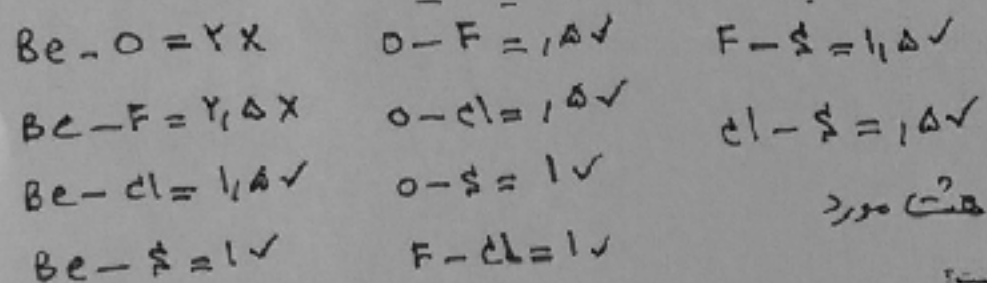 Be - O = ۲ ×
Be - F = ۲٫۵ ×
Be - Cl = ۱٫۵ ✓
Be - S = ۱ ✓
O - F = ٫۵ ✓
O - Cl = ٫۵ ✓
O - S = ۱ ✓
F - Cl = ۱ ✓
F - S = ۱٫۵ ✓
Cl - S = ٫۵ ✓
هشت مورد